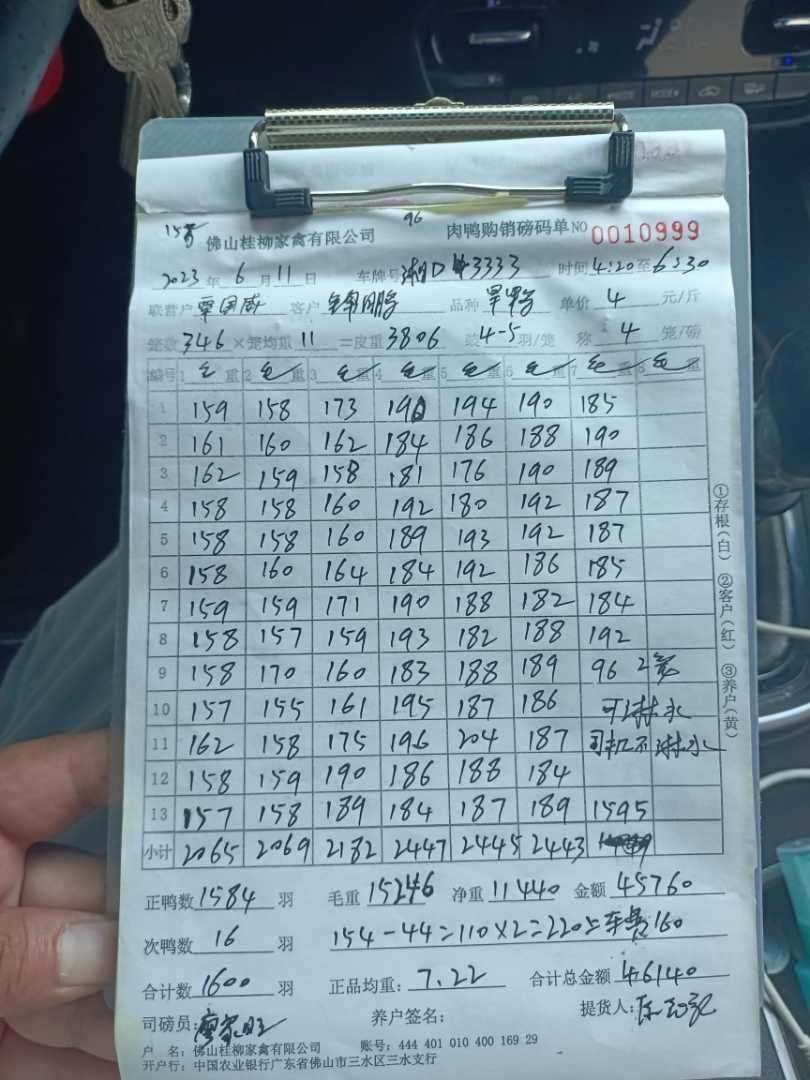 96
佛山桂柳家禽有限公司 肉鸭购销磅码单 NO 0010999
2023 年 6 月 11 日 车牌号 3333 时间 4:20 至 6:30
联营户 客户 品种 单价 4 元/斤
笼数 346 ×笼均重 11 =皮重 3806 装 4-5 羽/笼 称 4 笼/磅
编号 1 重 2 重 3 重 4 重 5 重 6 重 7 重 8 重
1 159 158 173 190 194 190 185
2 161 160 162 184 186 188 190
3 162 159 158 181 176 190 189
4 158 158 160 192 180 192 187
5 158 158 160 189 193 192 187
6 158 160 164 184 192 186 185
7 159 159 171 190 188 182 184
8 158 157 159 193 182 188 192
9 158 170 160 183 188 189 96 2笼
10 157 155 161 195 187 186 可淋水
11 162 158 175 196 204 187 司机不淋水
12 158 159 190 186 188 184
13 157 158 189 184 187 189 1595
小计 2065 2069 2182 2447 2445 2443
正鸭数 1584 羽 毛重 15246 净重 11440 金额 45760
次鸭数 16 羽 154-44=110×2=220 车费160
合计数 1600 羽 正品均重: 7.22 合计总金额 46140
司磅员: 养户签名: 提货人:
户 名: 佛山桂柳家禽有限公司 账号: 444 401 010 400 169 29
开户行: 中国农业银行广东省佛山市三水区三水支行
①存根(白) ②客户(红) ③养户(黄)